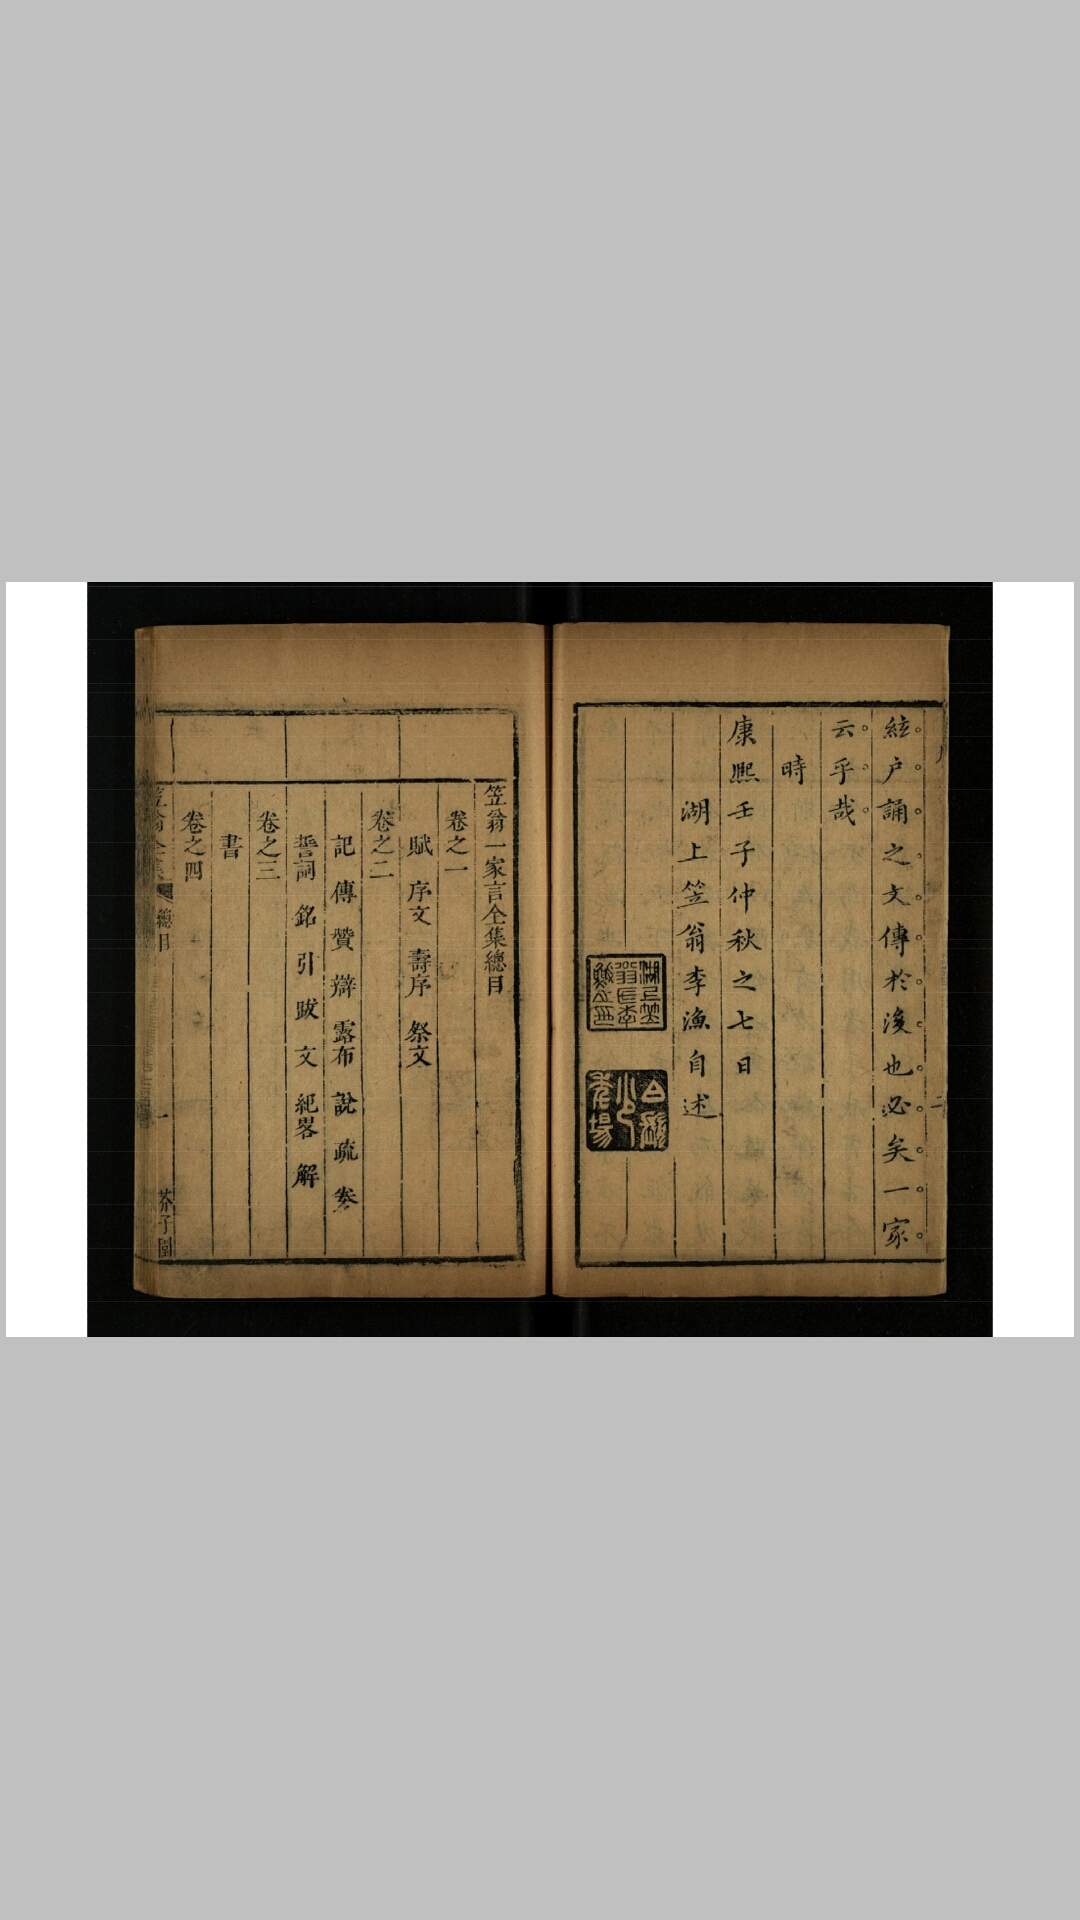 絃戶誦之文傳於後也必矣一家
云乎哉
時
康熙壬子仲秋之七日
湖上笠翁李漁自述
笠翁一家言全集總目
卷之一
賦 序文 壽序 祭文
卷之二
記 傳 贊 辯 露布 說 疏 券
誓詞 銘 引 跋 文 紀畧 解
卷之三
書
卷之四
笠翁全集 總目 一 芥子園